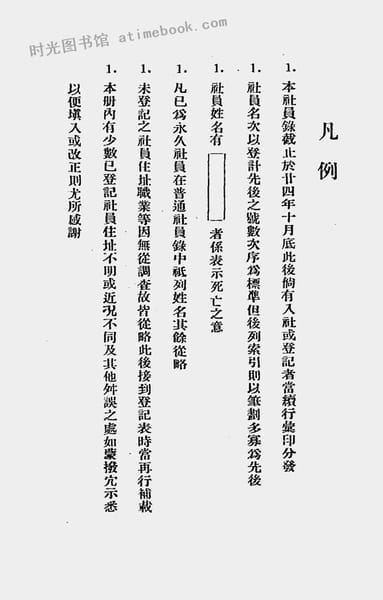 时光图书馆 atimebook.com
凡例
1. 本社員錄截止於廿四年十月底此後倘有入社或登記者當續行彙印分發
1. 社員名次以登計先後之號數次序爲標準但後列索引則以筆劃多寡爲先後
1. 社員姓名有 者係表示死亡之意
1. 凡已爲永久社員在普通社員錄中祇列姓名其餘從略
1. 未登記之社員住址職業等因無從調查故皆從略此後接到登記表時當再行補載
1. 本册內有少數已登記社員住址不明或近况不同及其他舛誤之處如蒙撥冗示悉
以便填入或改正則尤所感謝